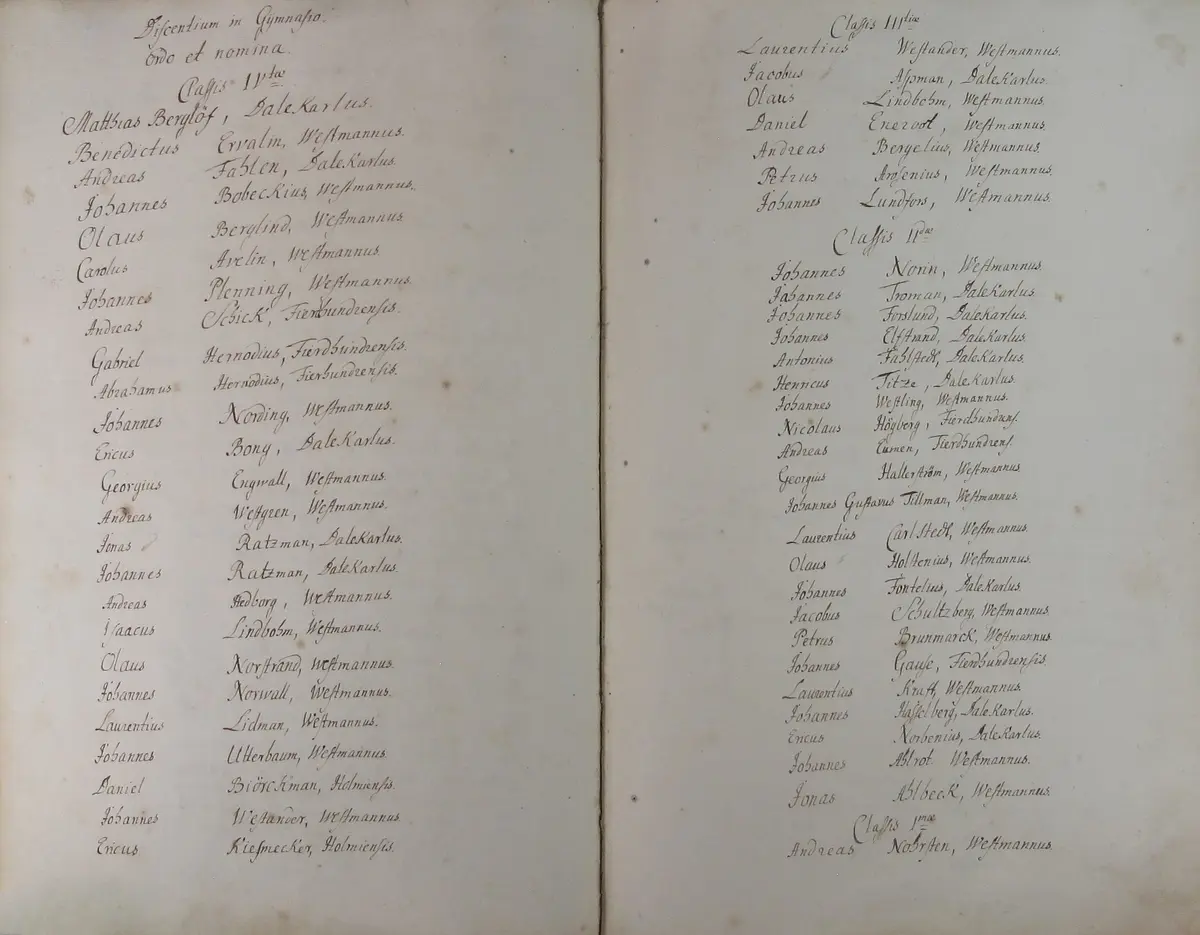 Discentium in Gymnasio.
Ordo et nomina.
Classis IVtæ
Matthias Berglöf, DaleKarlus.
Benedictus Ervalin, Westmannus.
Andreas Fahlen, DaleKarlus.
Johannes Bobeckius, Westmannus.
Olaus Berglind, Westmannus.
Carolus Avelin, Westmannus.
Johannes Plenning, Westmannus.
Andreas Schick, Fierdhundrensis.
Gabriel Hernodius, Fierdhundrensis.
Abrahamus Hernodius, Fierhundrensis.
Johannes Nording, Westmannus.
Ericus Bong, DaleKarlus.
Georgius Engwall, Westmannus.
Andreas Westgren, Westmannus.
Jonas Ratzman, DaleKarlus.
Johannes Ratzman, DaleKarlus.
Andreas Hedborg, Westmannus.
Isaacus Lindbohm, Westmannus.
Olaus Norstrand, Westmannus.
Johannes Norwall, Westmannus.
Laurentius Lidman, Westmannus.
Johannes Utterbaum, Westmannus.
Daniel Biörckman, Holmiensis.
Johannes Westander, Westmannus.
Ericus Kiesmecker, Holmiensis.
Classis IIItiæ
Laurentius Westander, Westmannus.
Jacobus Assman, DaleKarlus
Olaus Lindbohm, Westmannus.
Daniel Eneroot, Westmannus.
Andreas Bergelius, Westmannus.
Petrus Arosenius, Westmannus.
Johannes Lundfors, Westmannus.
Classis IIdæ
Johannes Norin, Westmannus.
Johannes Troman, DaleKarlus.
Johannes Forslund, DaleKarlus.
Johannes Elfstrand, DaleKarlus.
Antonius Fahlstedt, DaleKarlus.
Henricus Titze, DaleKarlus.
Johannes Westling, Westmannus.
Nicolaus Högberg, Fierdhundrens.
Andreas Eumen, Fierdhundrens.
Georgius Hallerström, Westmannus.
Johannes Gustavus Tillman, Westmannus.
Laurentius CarlStedt, Westmannus.
Olaus Holstenius, Westmannus.
Johannes Fontelius, DaleKarlus.
Jacobus Schultzberg, Westmannus.
Petrus Brunmarck, Westmannus.
Johannes Gause, Fierdhundrensis.
Laurentius Kraft, Westmannus.
Johannes Hasselberg, DaleKarlus.
Ericus Norbenius, DaleKarlus.
Johannes Ahlrot Westmannus.
Jonas Ahlbeck, Westmannus.
Classis Imæ
Andreas Nohrsten, Westmannus.